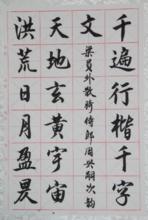 千遍行楷千字
文 梁員外散騎侍郎周興嗣次韵
天地玄黄宇宙
洪荒日月盈昃